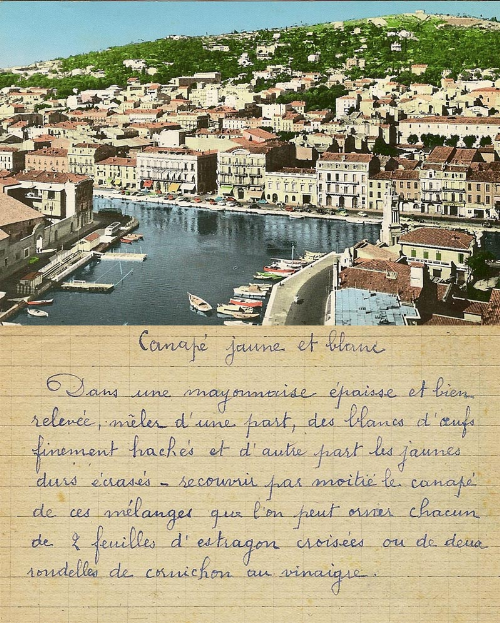 Canapé jaune et blanc
Dans une mayonnaise épaisse et bien
relevée, mêler d'une part, des blancs d'œufs
finement hachés et d'autre part les jaunes
durs écrasés - recouvrir par moitié le canapé
de ces mélanges que l'on peut orner chacun
de 2 feuilles d'estragon croisées ou de deux
rondelles de cornichon au vinaigre.